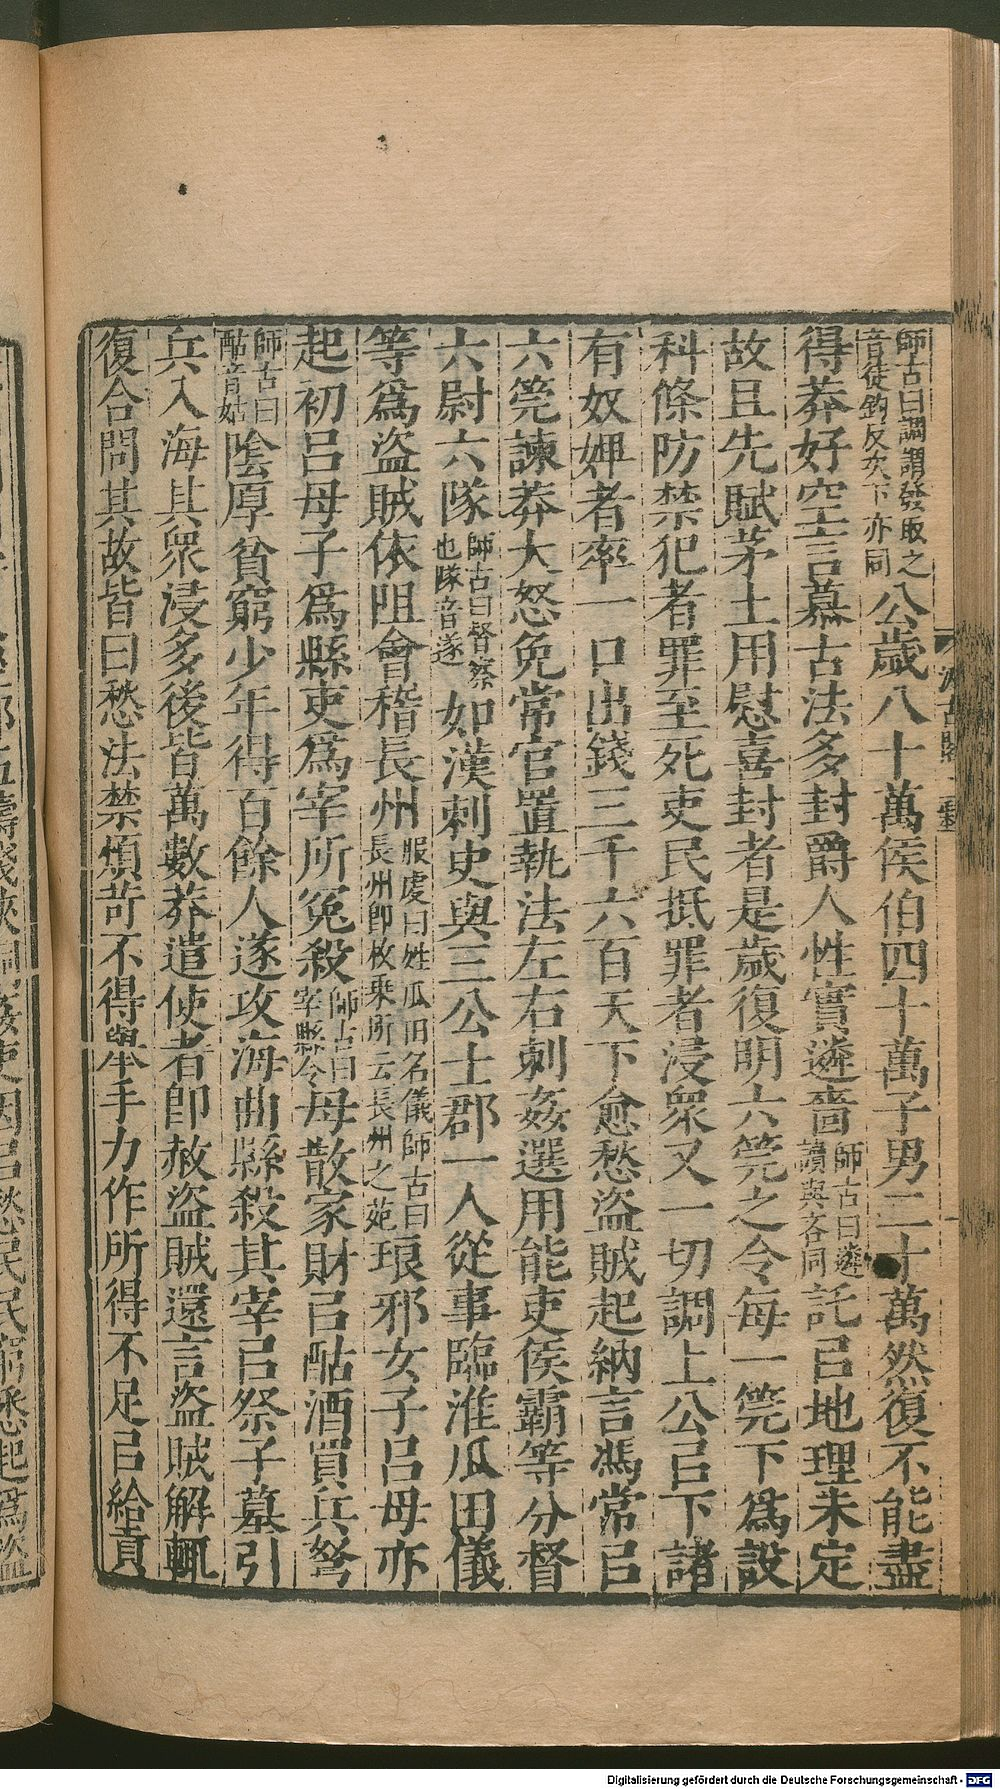 師古曰調謂發取之音徒釣反次下亦同公歲八十萬侯伯四十萬子男二十萬然復不能盡
得莽好空言慕古法多封爵人性實遴嗇師古曰遴讀與吝同託㠯地理未定
故且先賦茅土用慰喜封者是歲復明六筦之令每一筦下爲設
科條防禁犯者罪至死吏民抵罪者浸衆又一切調上公㠯下諸
有奴婢者率一口出錢三千六百天下愈愁盜賊起納言馮常㠯
六筦諫莽大怒免常官置執法左右刺姦選用能吏侯霸等分督
六尉六隊師古曰督察也隊音遂如漢刺史與三公士郡一人從事臨淮瓜田儀
等爲盜賊依阻會稽長州服虔曰姓瓜田名儀師古曰長州即枚乘所云長州之苑琅邪女子呂母亦
起初呂母子爲縣吏爲宰所冤殺師古曰宰縣令母散家財㠯酤酒買兵弩
師古曰酤音姑陰厚貧窮少年得百餘人遂攻海曲縣殺其宰㠯祭子墓引
兵入海其衆浸多後皆萬數莽遣使者即赦盜賊還言盜賊解輒
復合問其故皆曰愁法禁煩苛不得舉手力作所得不足㠯給貢
Digitalisierung gefördert durch die Deutsche Forschungsgemeinschaft - DFG